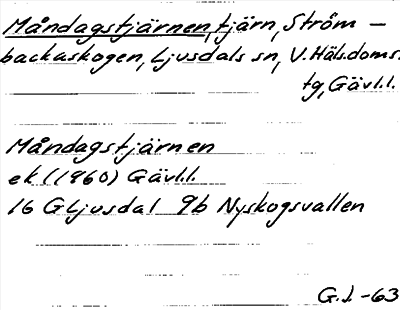 Måndagstjärnen, tjärn, Ström-
backaskogen, Ljusdals sn, V. Hälsdoms.
tg, Gävl.l.
Måndagstjärnen
ek (1960) Gävl.l.
16 G Ljusdal 9b Nyskogsvallen
G.J. -63